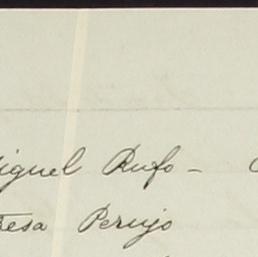 iguel Rufo –
resa Perujo